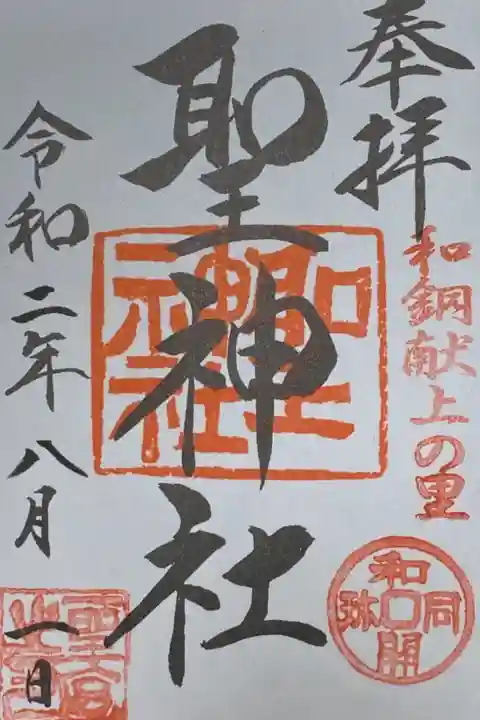 奉拝
和銅献上の里
和同開珎
聖神社
聖神社
令和二年八月一日